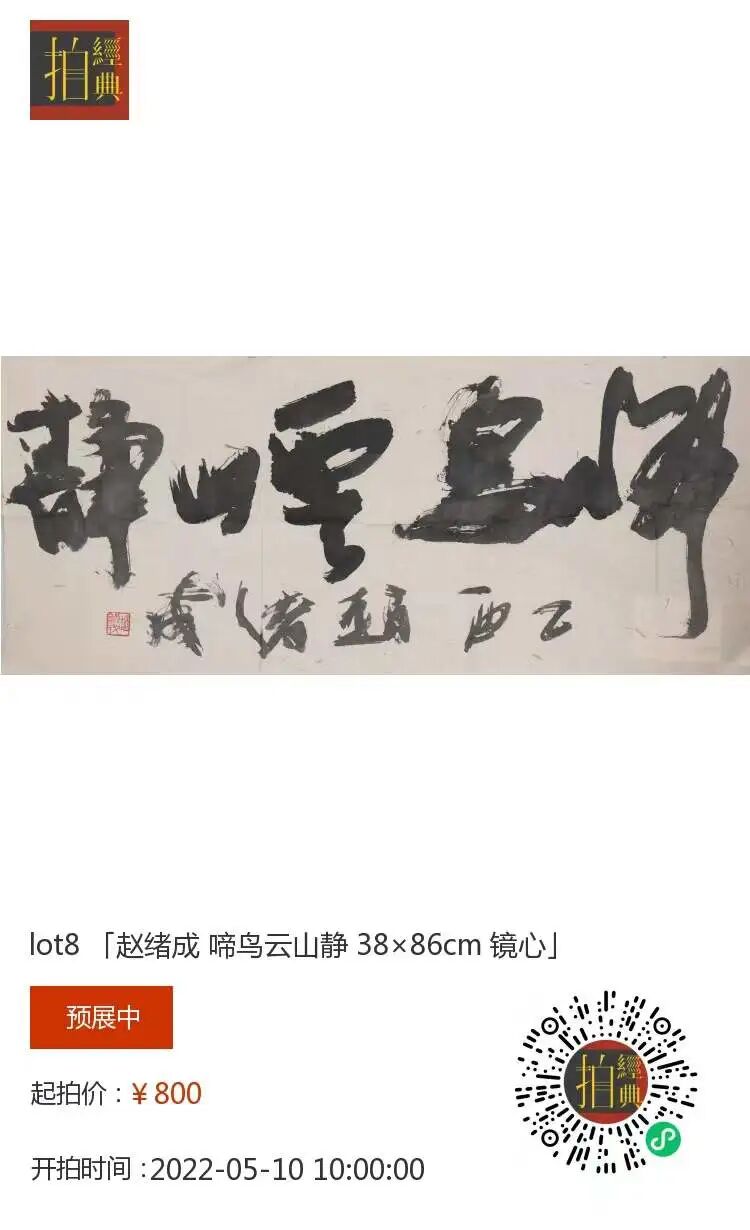 拍經典
啼鳥雲山静
乙酉 趙緒成
lot8 「赵绪成 啼鸟云山静 38×86cm 镜心」
预展中
起拍价：¥ 800
开拍时间：2022-05-10 10:00:00
拍經典